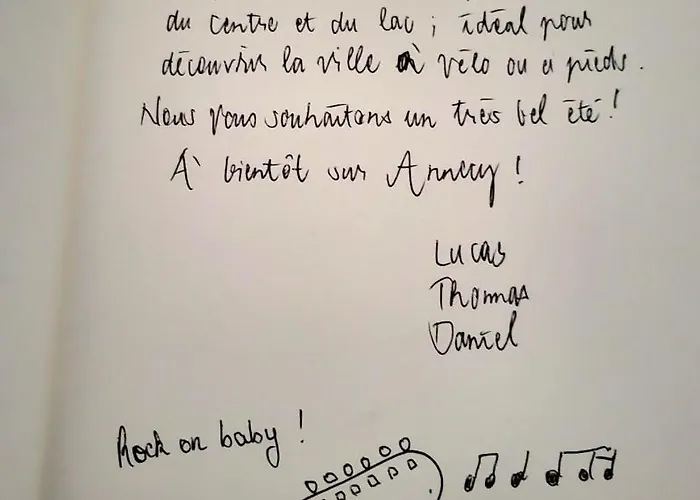 du centre et du lac ; idéal pour
découvrir la ville à vélo ou à pieds.
Nous vous souhaitons un très bel été !
À bientôt sur Annecy !
Lucas
Thomas
Daniel
Rock on baby !